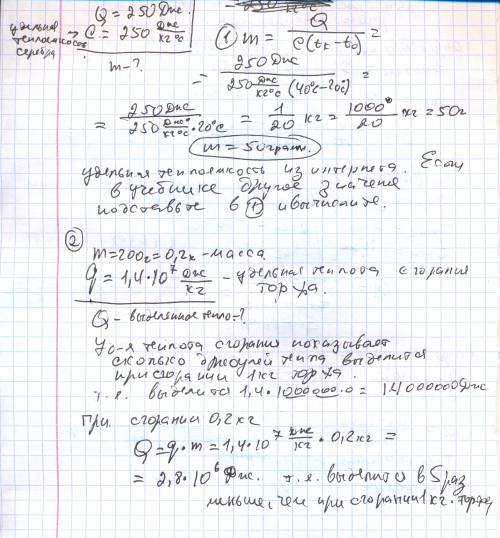 Q = 250 Дж.
удельная теплоемкость серебра → C = 250 Дж/кг°C
m - ?
① m = Q / C(tк - t0) =
= 250 Дж / 250 Дж/кг°C (40°C - 20°C) =
= 250 Дж / 250 Дж/кг°C · 20°C = 1/20 кг = 1000/20 кг = 50г
m = 50 грам.
удельная теплоемкость из интернета. Если
в учебнике другое значение
подставьте в ① и вычислите.
②
m = 200г = 0,2к - масса
q = 1,4·10⁷ Дж/кг - удельная теплота сгорания
торфа.
Q - выделенное тепло - ?
Уд-я теплота сгорания показывает
сколько джоулей тепла выделится
при сгорании 1кг торфа.
т.е. выделится 1,4·10000000 = 14000000Дж
При сгорании 0,2 кг
Q = q·m = 1,4·10⁷ Дж/кг · 0,2 кг =
= 2,8·10⁶ Дж. т.е. выделится в 5 раз
меньше, чем при сгорании 1кг. торфа